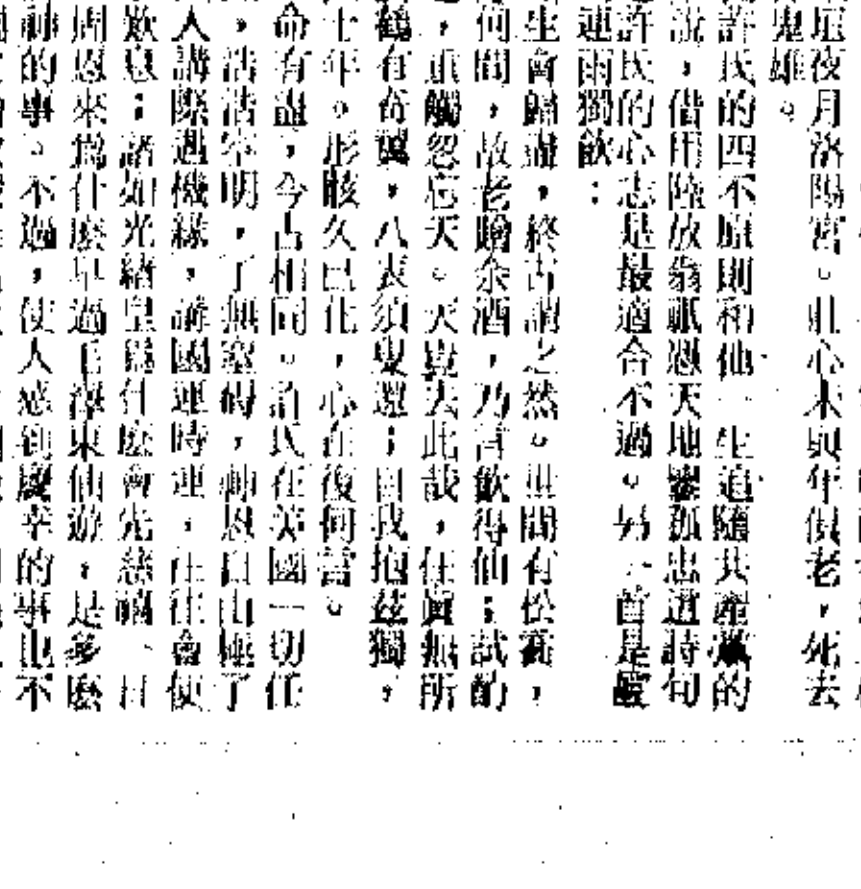 垣夜月洛陽宮。壯心未與年俱老，死去
鬼雄。
許氏的四不原則和他一生追隨共產黨的
說，借用陸放翁祇憑天地鑒孤忠這詩句
許氏的心志是最適合不過。另一首是
連雨獨飲：
生會歸盡，終古謂之然。世間有松喬，
何間，故老贈余酒，乃言飲得仙；試酌
，重觴忽忘天。天豈去此哉，任眞無所
鶴有奇翼，八表須臾還；自我抱茲獨，
十年。形骸久已化，心在復何言。
命有盡，今古相同。許氏在美國一切任
，浩浩空明，了無窒礙，轉恩自由極了
人講際遇機緣，講國運時運，往往會使
歎息；諸如光緒皇爲什麼會先慈禧一日
周恩來爲什麼早過毛澤東仙游，是多麼
的事。不過，使人感到慶幸的事也不